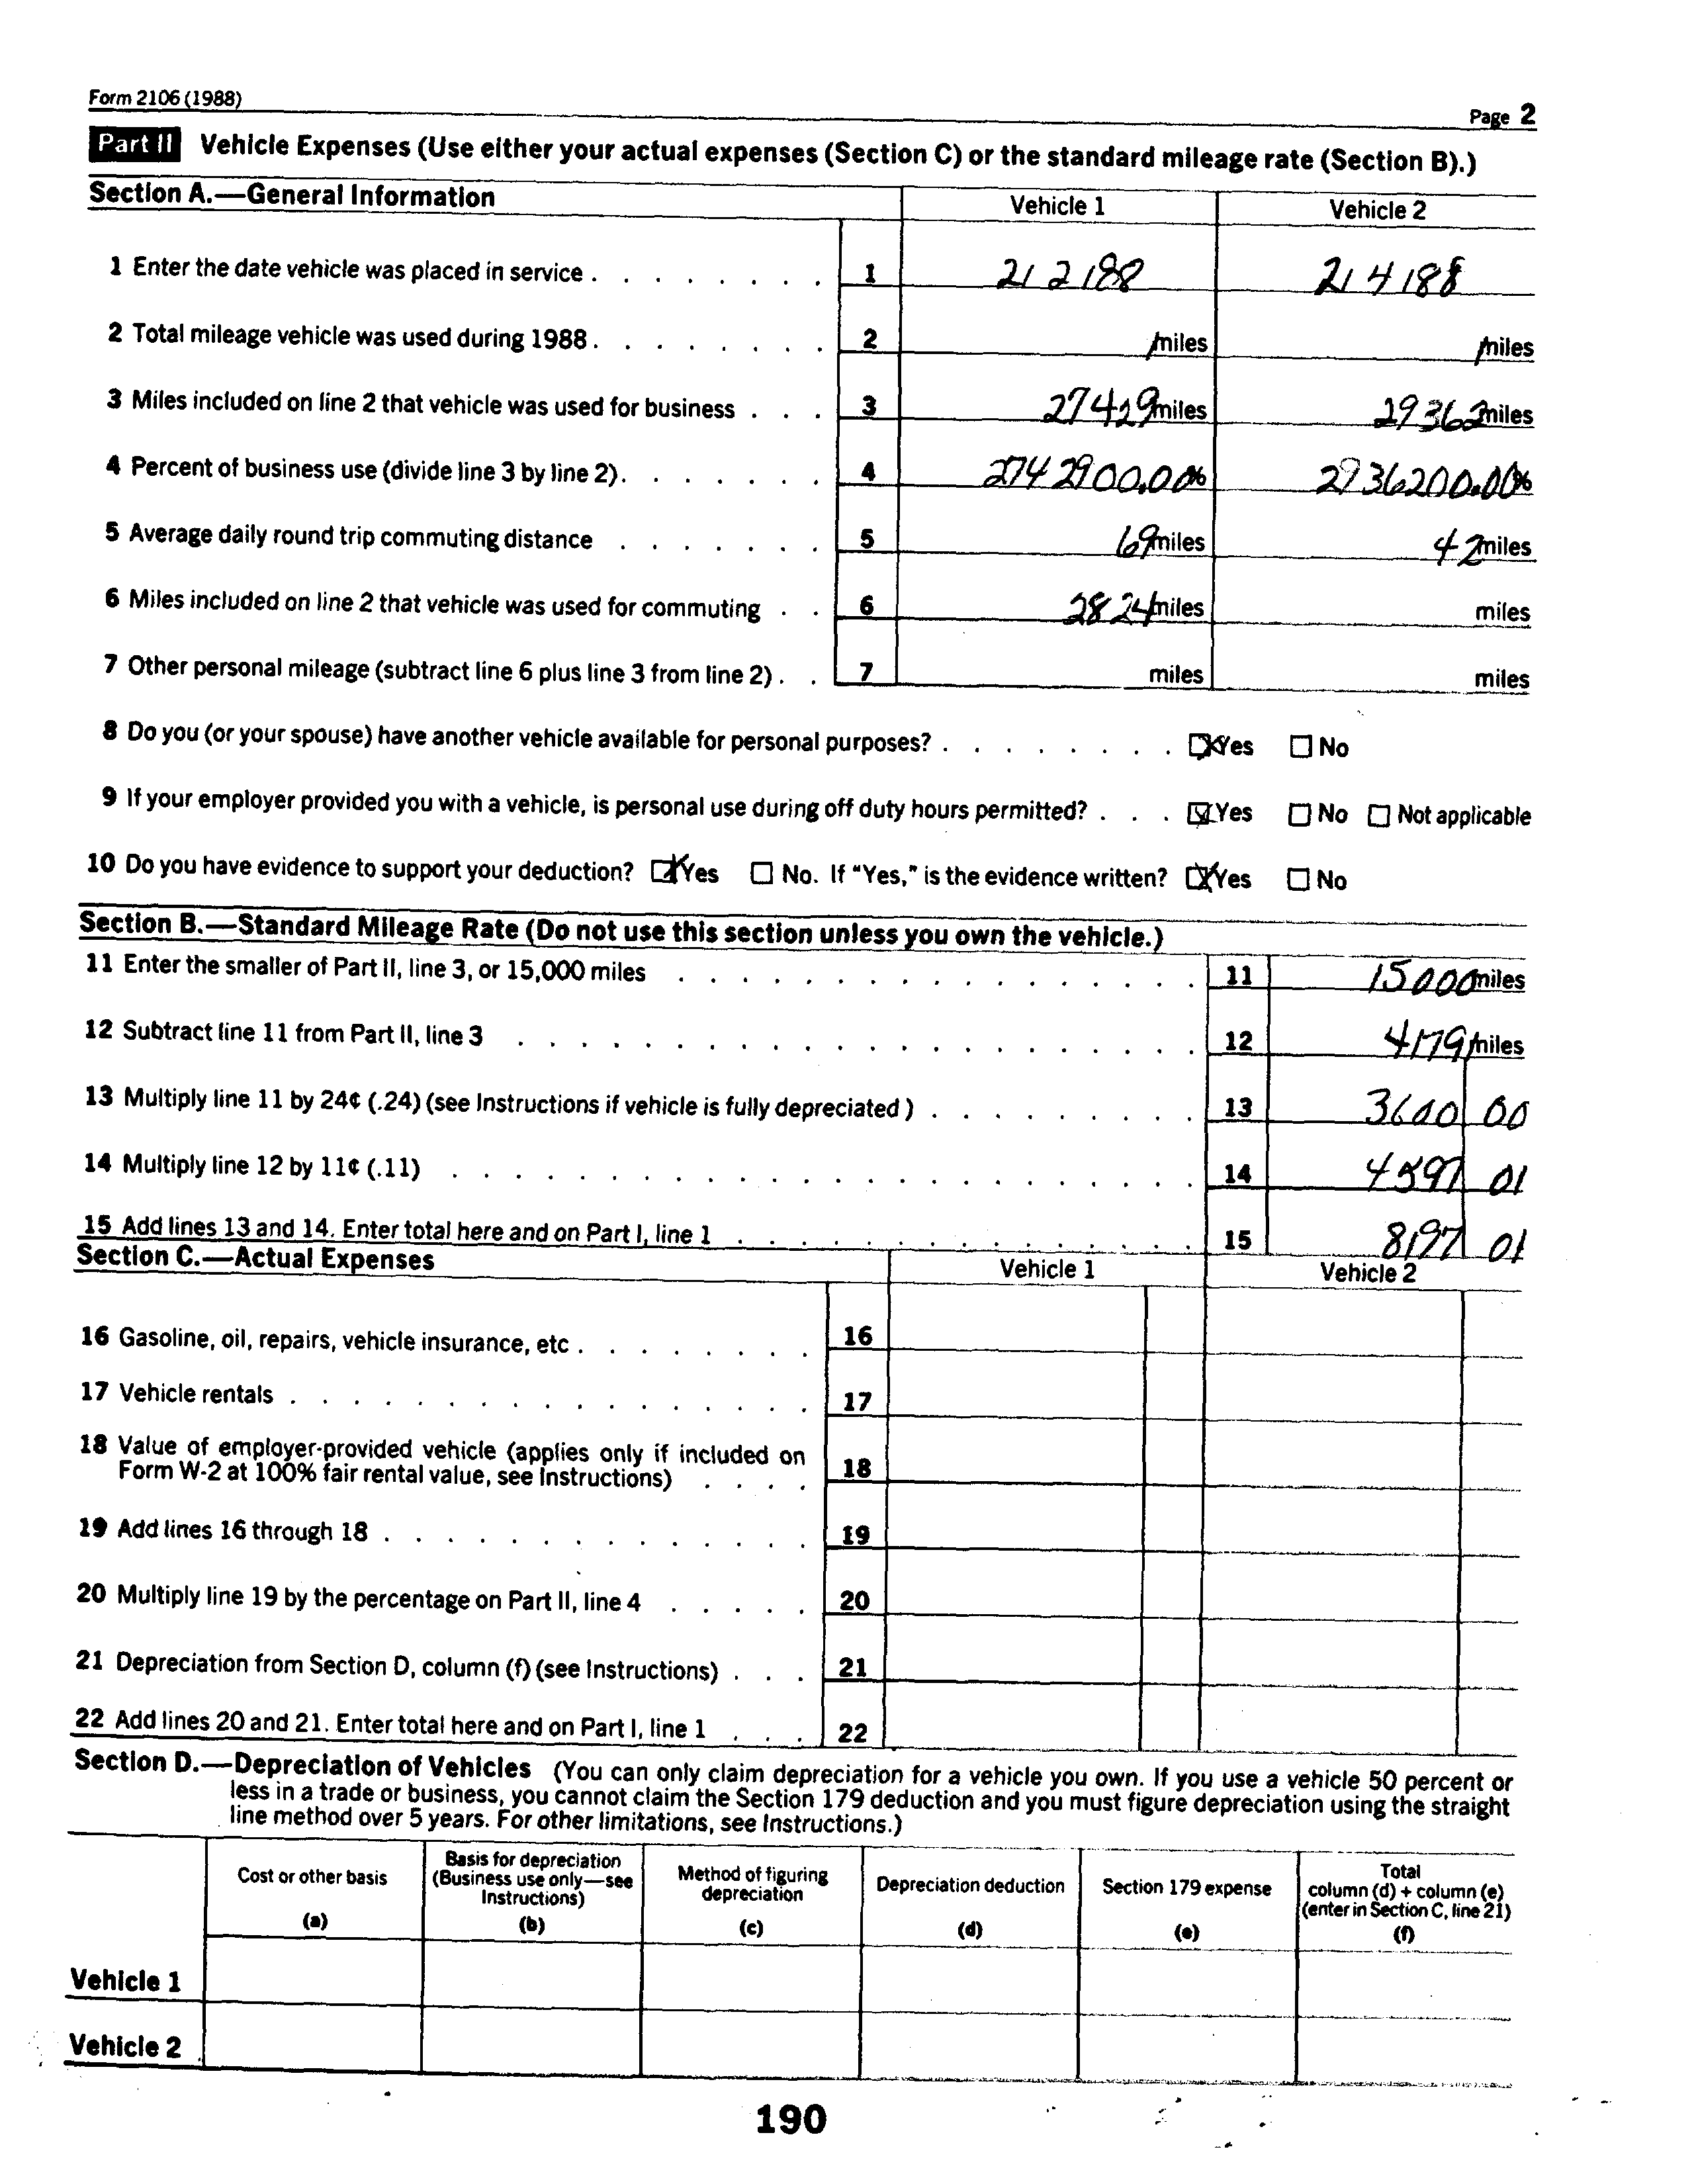 Form 2106 (1988)
Page 2
Part II Vehicle Expenses (Use either your actual expenses (Section C) or the standard mileage rate (Section B).)
Section A.—General Information Vehicle 1 Vehicle 2
1 Enter the date vehicle was placed in service . . . . . . . . 1 2/ 2 /88 2/ 4 /88
2 Total mileage vehicle was used during 1988 . . . . . . . . 2 /miles /miles
3 Miles included on line 2 that vehicle was used for business . . . 3 27429 miles 29362 miles
4 Percent of business use (divide line 3 by line 2) . . . . . . . 4 2742900.00% 2936200.00%
5 Average daily round trip commuting distance . . . . . . . 5 69 miles 42 miles
6 Miles included on line 2 that vehicle was used for commuting . . 6 2824 miles miles
7 Other personal mileage (subtract line 6 plus line 3 from line 2) . . 7 miles miles
8 Do you (or your spouse) have another vehicle available for personal purposes? . . . . . . . . ☒ Yes ☐ No
9 If your employer provided you with a vehicle, is personal use during off duty hours permitted? . . . ☒ Yes ☐ No ☐ Not applicable
10 Do you have evidence to support your deduction? ☒ Yes ☐ No. If "Yes," is the evidence written? ☒ Yes ☐ No
Section B.—Standard Mileage Rate (Do not use this section unless you own the vehicle.)
11 Enter the smaller of Part II, line 3, or 15,000 miles . . . . . . . . . . . . . . . . . 11 15000 miles
12 Subtract line 11 from Part II, line 3 . . . . . . . . . . . . . . . . . . . . . . 12 4179/miles
13 Multiply line 11 by 24¢ (.24) (see Instructions if vehicle is fully depreciated ) . . . . . . . . . 13 3600 00
14 Multiply line 12 by 11¢ (.11) . . . . . . . . . . . . . . . . . . . . . . . . 14 4597 01
15 Add lines 13 and 14. Enter total here and on Part I, line 1 . . . . . . . . . . . . . . . 15 8197 01
Section C.—Actual Expenses Vehicle 1 Vehicle 2
16 Gasoline, oil, repairs, vehicle insurance, etc . . . . . . . . 16
17 Vehicle rentals . . . . . . . . . . . . . . . . . 17
18 Value of employer-provided vehicle (applies only if included on
Form W-2 at 100% fair rental value, see Instructions) . . . . 18
19 Add lines 16 through 18 . . . . . . . . . . . . . . 19
20 Multiply line 19 by the percentage on Part II, line 4 . . . . . 20
21 Depreciation from Section D, column (f) (see Instructions) . . . 21
22 Add lines 20 and 21. Enter total here and on Part I, line 1 . . . 22
Section D.—Depreciation of Vehicles (You can only claim depreciation for a vehicle you own. If you use a vehicle 50 percent or
less in a trade or business, you cannot claim the Section 179 deduction and you must figure depreciation using the straight
line method over 5 years. For other limitations, see Instructions.)
Cost or other basis
(a)
Basis for depreciation
(Business use only—see
Instructions)
(b)
Method of figuring
depreciation
(c)
Depreciation deduction
(d)
Section 179 expense
(e)
Total
column (d) + column (e)
(enter in Section C, line 21)
(f)
Vehicle 1
Vehicle 2
190